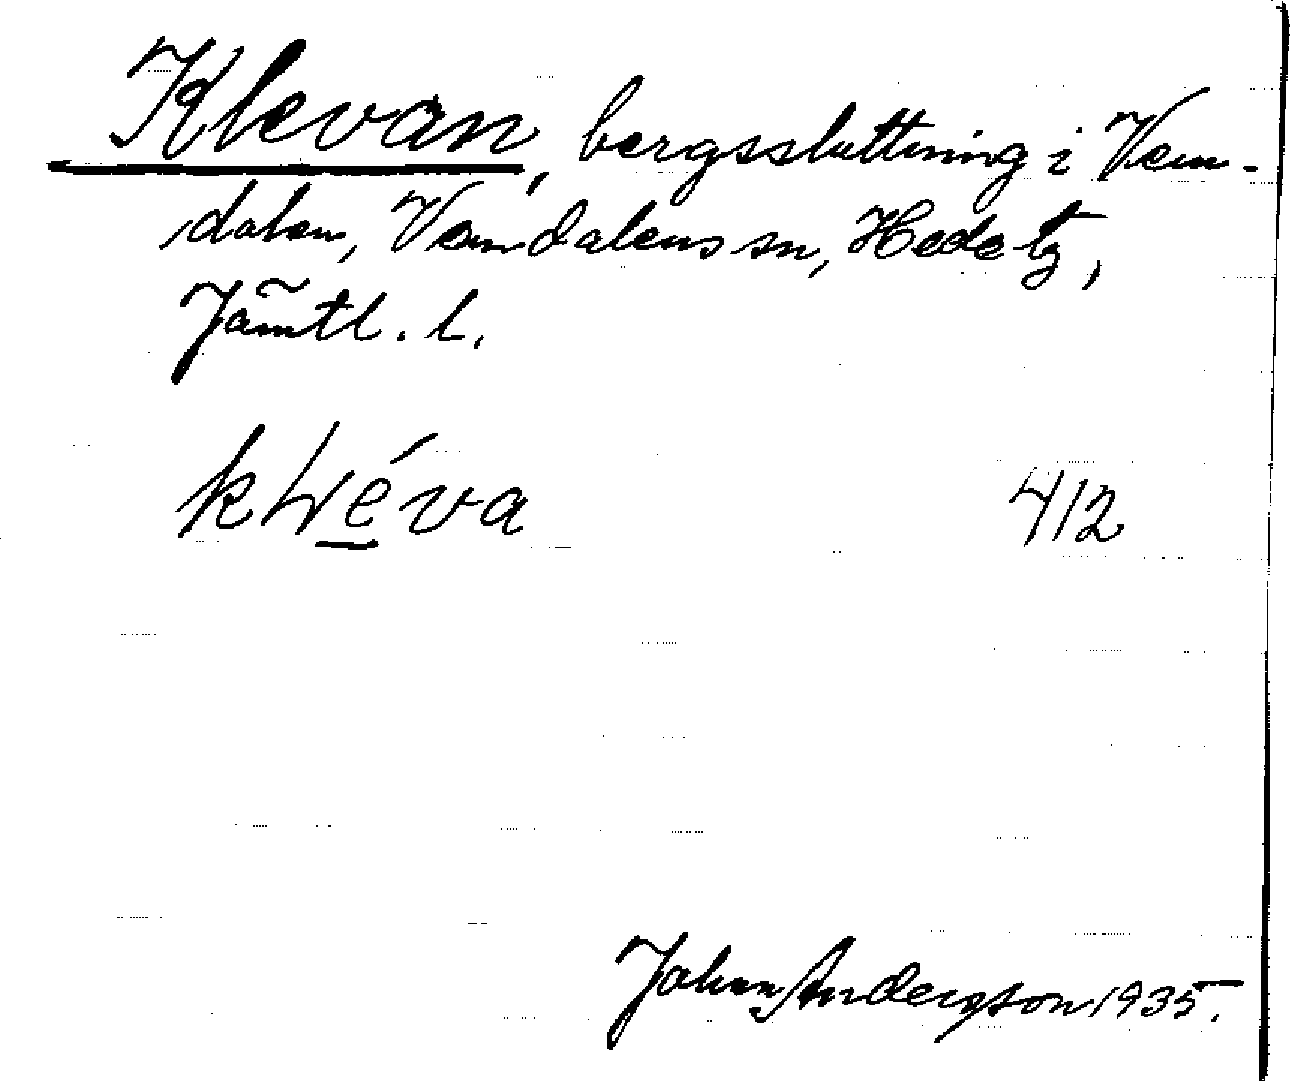 Klevan, bergssluttning i Vem-
dalen, Vemdalens sn, Hede tg,
Jämtl. l.
412
Johan Anderson 1935.